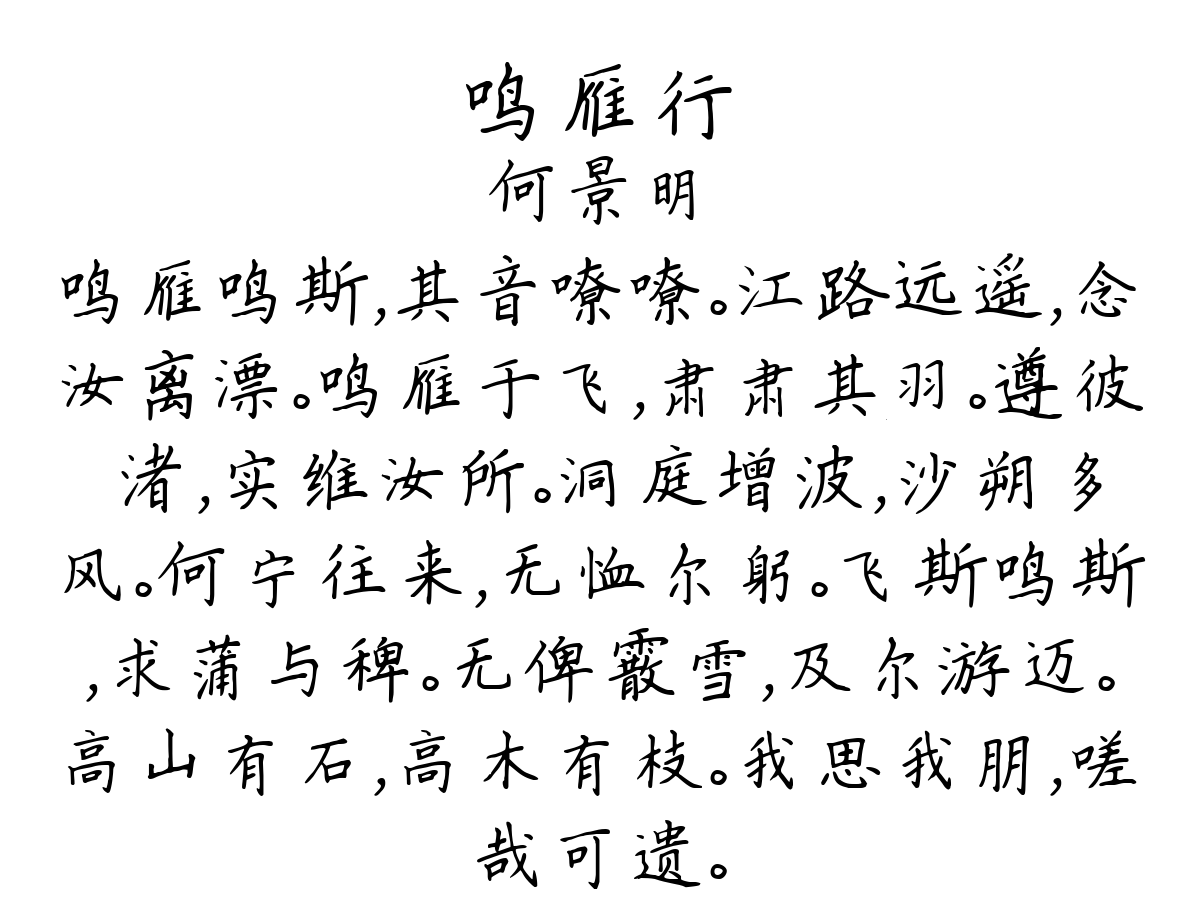 鸣雁行
何景明
鸣雁鸣斯,其音嘹嘹。江路远遥,念
汝离漂。鸣雁于飞,肃肃其羽。遵彼
渚,实维汝所。洞庭增波,沙朔多
风。何宁往来,无恤尔躬。飞斯鸣斯
,求蒲与稗。无俾霰雪,及尔游迈。
高山有石,高木有枝。我思我朋,嗟
哉可遗。